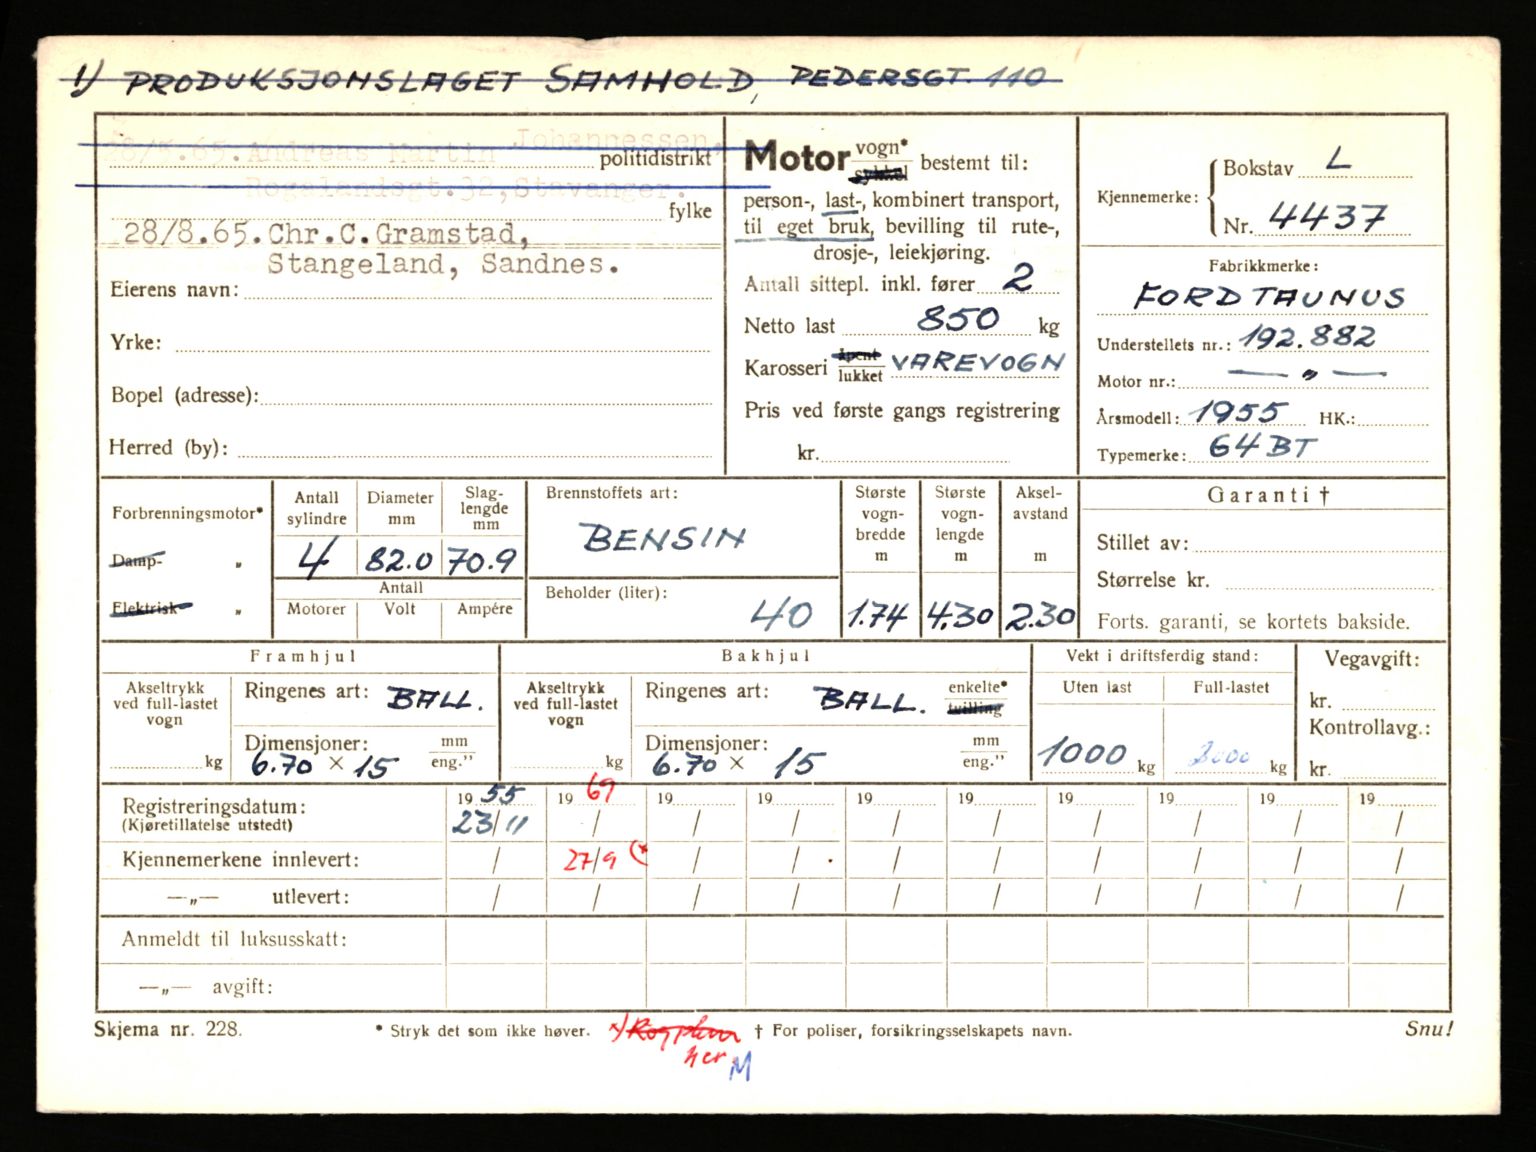 1) PRODUKSJONSLAGET SAMHOLD, PEDERSGT. 110
8/7.65. Andreas Martin Johannessen,
politidistrikt
Rogalandsgt.32, Stavanger.
fylke
28/8.65. Chr.C.Gramstad,
Stangeland, Sandnes.
Eierens navn:
Yrke:
Bopel (adresse):
Herred (by):
Motor vogn* sykkel bestemt til:
person-, last-, kombinert transport,
til eget bruk, bevilling til rute-,
drosje-, leiekjøring.
Antall sittepl. inkl. fører 2
Netto last 850 kg
Karosseri åpent lukket VAREVOGN
Pris ved første gangs registrering
kr.
Kjennemerke: Bokstav L
Nr. 4437
Fabrikkmerke:
FORD TAUNUS
Understellets nr.: 192.882
Motor nr.: — „ —
Årsmodell: 1955 HK.:
Typemerke: 64 BT
Forbrenningsmotor*
Damp- „
Elektrisk „
Antall sylindre
Diameter mm
Slag-lengde mm
4 82.0 70.9
Antall
Motorer Volt Ampére
Brennstoffets art:
BENSIN
Beholder (liter):
40
Største vogn-bredde m
Største vogn-lengde m
Aksel-avstand m
1.74 4.30 2.30
Garanti †
Stillet av:
Størrelse kr.
Forts. garanti, se kortets bakside.
Framhjul
Akseltrykk ved full-lastet vogn
kg
Ringenes art: BALL.
Dimensjoner: mm eng."
6.70 × 15
Bakhjul
Akseltrykk ved full-lastet vogn
kg
Ringenes art: BALL. enkelte* tvilling
Dimensjoner: mm eng."
6.70 × 15
Vekt i driftsferdig stand:
Uten last Full-lastet
1000 kg 2000 kg
Vegavgift:
kr.
Kontrollavg.:
kr.
Registreringsdatum: 19 55 19 69 19 19 19 19 19 19 19 19
(Kjøretillatelse utstedt) 23/11 / / / / / / / / /
Kjennemerkene innlevert: / 27/9 (* / / / / / / / /
—„— utlevert: / / / / / / / / / /
Anmeldt til luksusskatt:
—„— avgift:
Skjema nr. 228.
* Stryk det som ikke høver.
† For poliser, forsikringsselskapets navn.
Snu!
her.
M